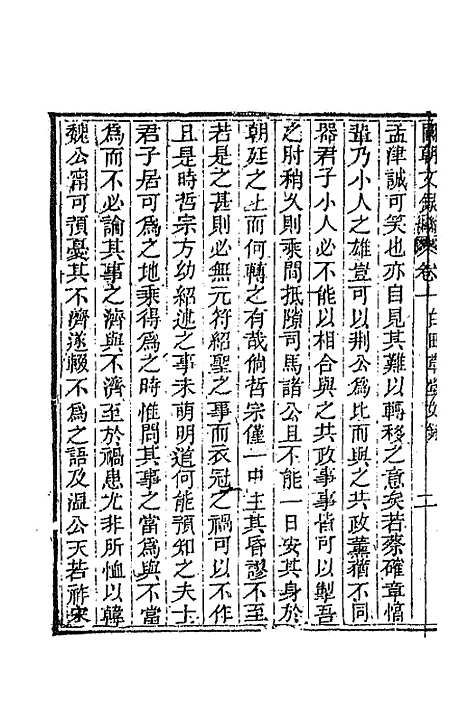 國朝文錄續編 卷一 白田草堂文錄 二
孟津誠可笑也亦自見其難以轉移之意矣若蔡確章惇
輩乃小人之雄豈可以荆公爲比而與之共政薰蕕不同
器君子小人必不能以相合與之共政事事皆可以掣吾
之肘稍久則乘間抵隙司馬諸公且不能一日安其身於
朝廷之上而何轉之有哉倘哲宗僅一中主其昏謬不至
若是之甚則必無元符紹聖之事而衣冠之禍可以不作
且是時哲宗方幼紹述之事未萌明道何能預知之夫士
君子居可爲之地乘得爲之時惟問其事之當爲與不當
爲而不必論其事之濟與不濟至於禍患尤非所恤以韓
魏公甯可預憂其不濟遂輟不爲之語及溫公天若祚宋